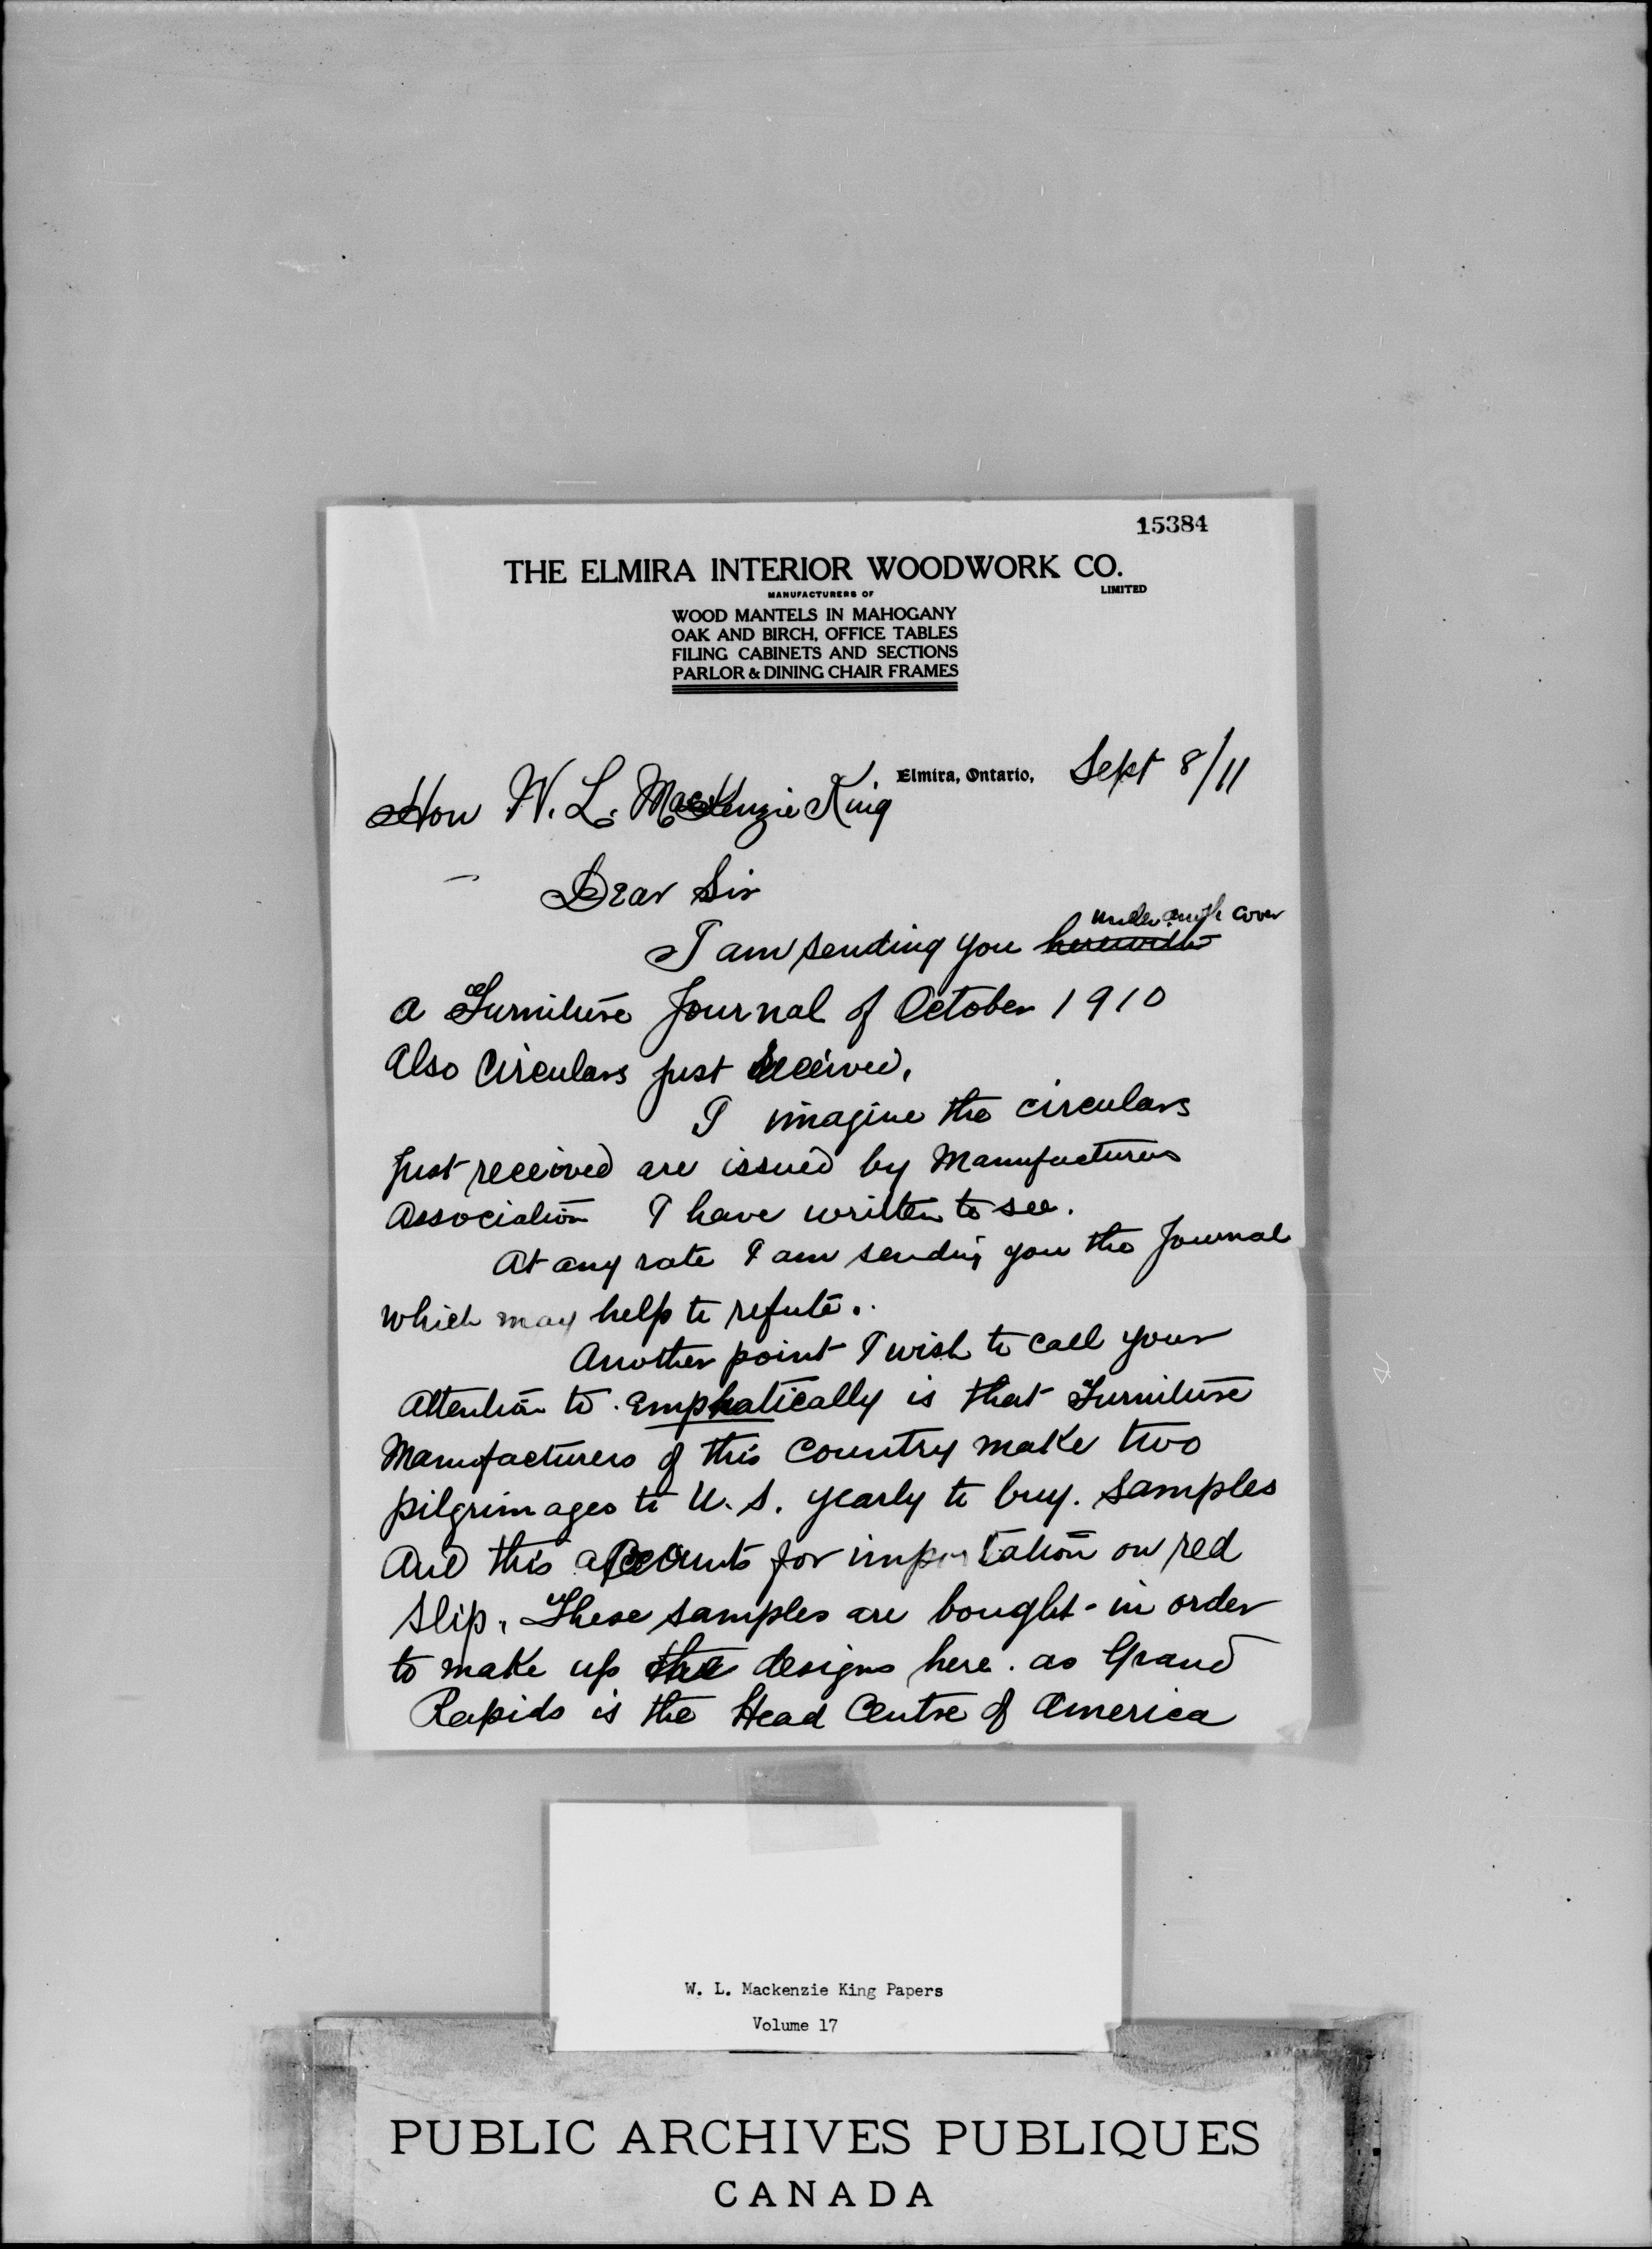 15384
THE ELMIRA INTERIOR WOODWORK CO.
LIMITED
MANUFACTURERS OF
WOOD MANTELS IN MAHOGANY
OAK AND BIRCH, OFFICE TABLES
FILING CABINETS AND SECTIONS
PARLOR & DINING CHAIR FRAMES
Elmira, Ontario, Sept 8/11
Hon W. L. MacKenzie King
Dear Sir
under cover
I am sending you herewith
a Furniture Journal of October 1910
Also Circulars just received.
I imagine the circulars
just received are issued by Manufacturers
Association I have written to see.
At any rate I am sending you the Journal
which may help to refute.
Another point I wish to call your
attention to emphatically is that Furniture
Manufacturers of this Country make two
pilgrimages to U.S. yearly to buy. samples
And this accounts for importation on red
slip. These samples are bought - in order
to make up the designs here. as Grand
Rapids is the Head Centre of America
W. L. Mackenzie King Papers
Volume 17
PUBLIC ARCHIVES PUBLIQUES
CANADA